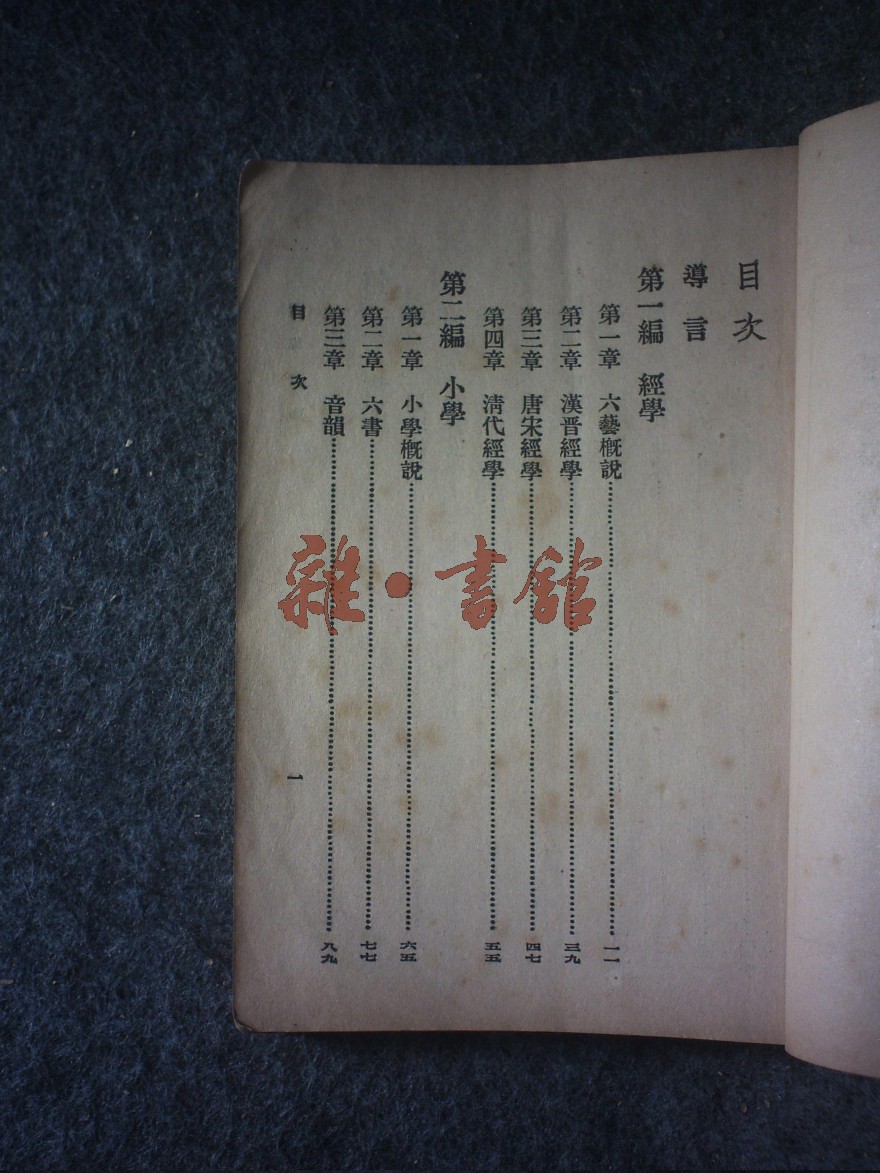 目次
導言
第一編 經學
第一章 六藝概說…………一一
第二章 漢晋經學…………三九
第三章 唐宋經學…………四七
第四章 清代經學…………五五
第二編 小學
第一章 小學概說…………六五
第二章 六書…………七七
第三章 音韻…………八九
目次 一
雜·書館